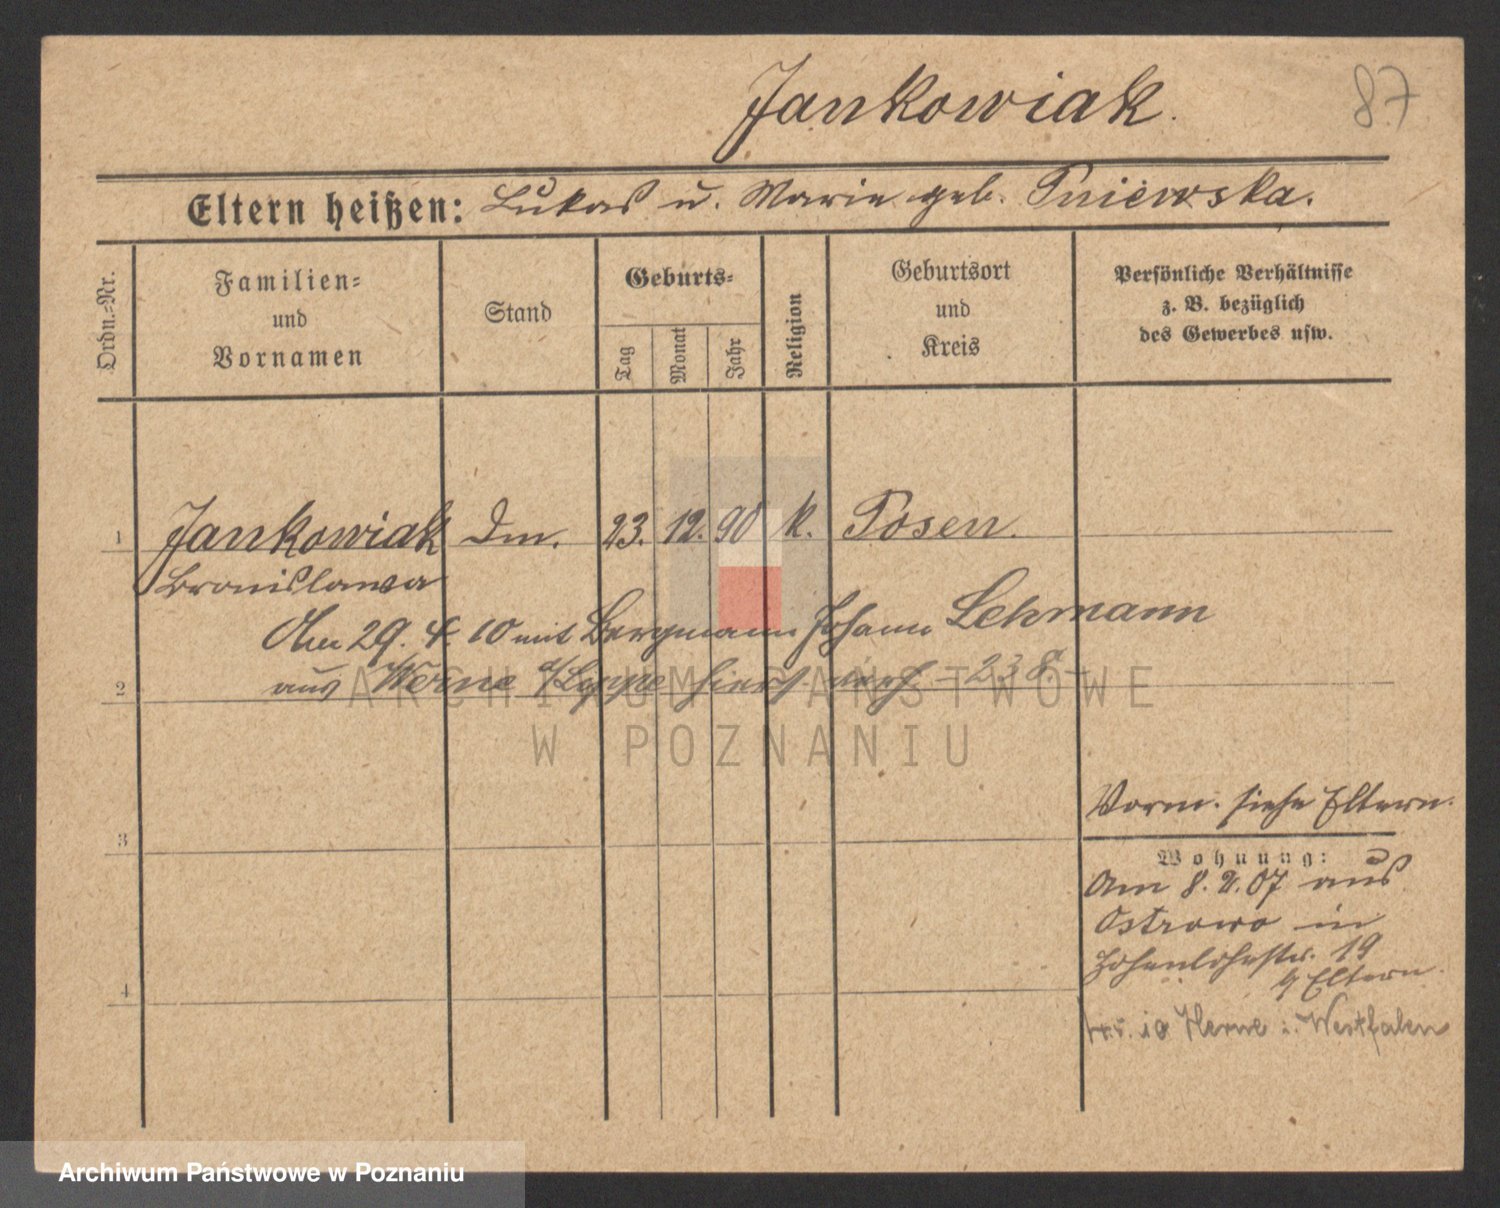 Jankowiak.
87
Eltern heißen: Lukas u. Marie geb. Pniewska.
Ordn.=Nr.
Familien=
und
Vornamen
Stand
Geburts=
Tag
Monat
Jahr
Religion
Geburtsort
und
Kreis
Persönliche Verhältnisse
z. B. bezüglich
des Gewerbes usw.
1 Jankowiak Dm. 23. 12. 90 k. Posen.
Bronislawa
Am 29. 4. 10 mit Bergmann Johann Lehmann
2 aus Werne a/Lippe hier verh. 238.
ARCHIWUM PAŃSTWOWE
W POZNANIU
3
Vorm. siehe Eltern.
Wohnung:
Am 8. 2. 07 aus
Ostrowo in
Hohenlohestr. 19
b/Eltern.
4
10 Herne i. Westfalen
Archiwum Państwowe w Poznaniu